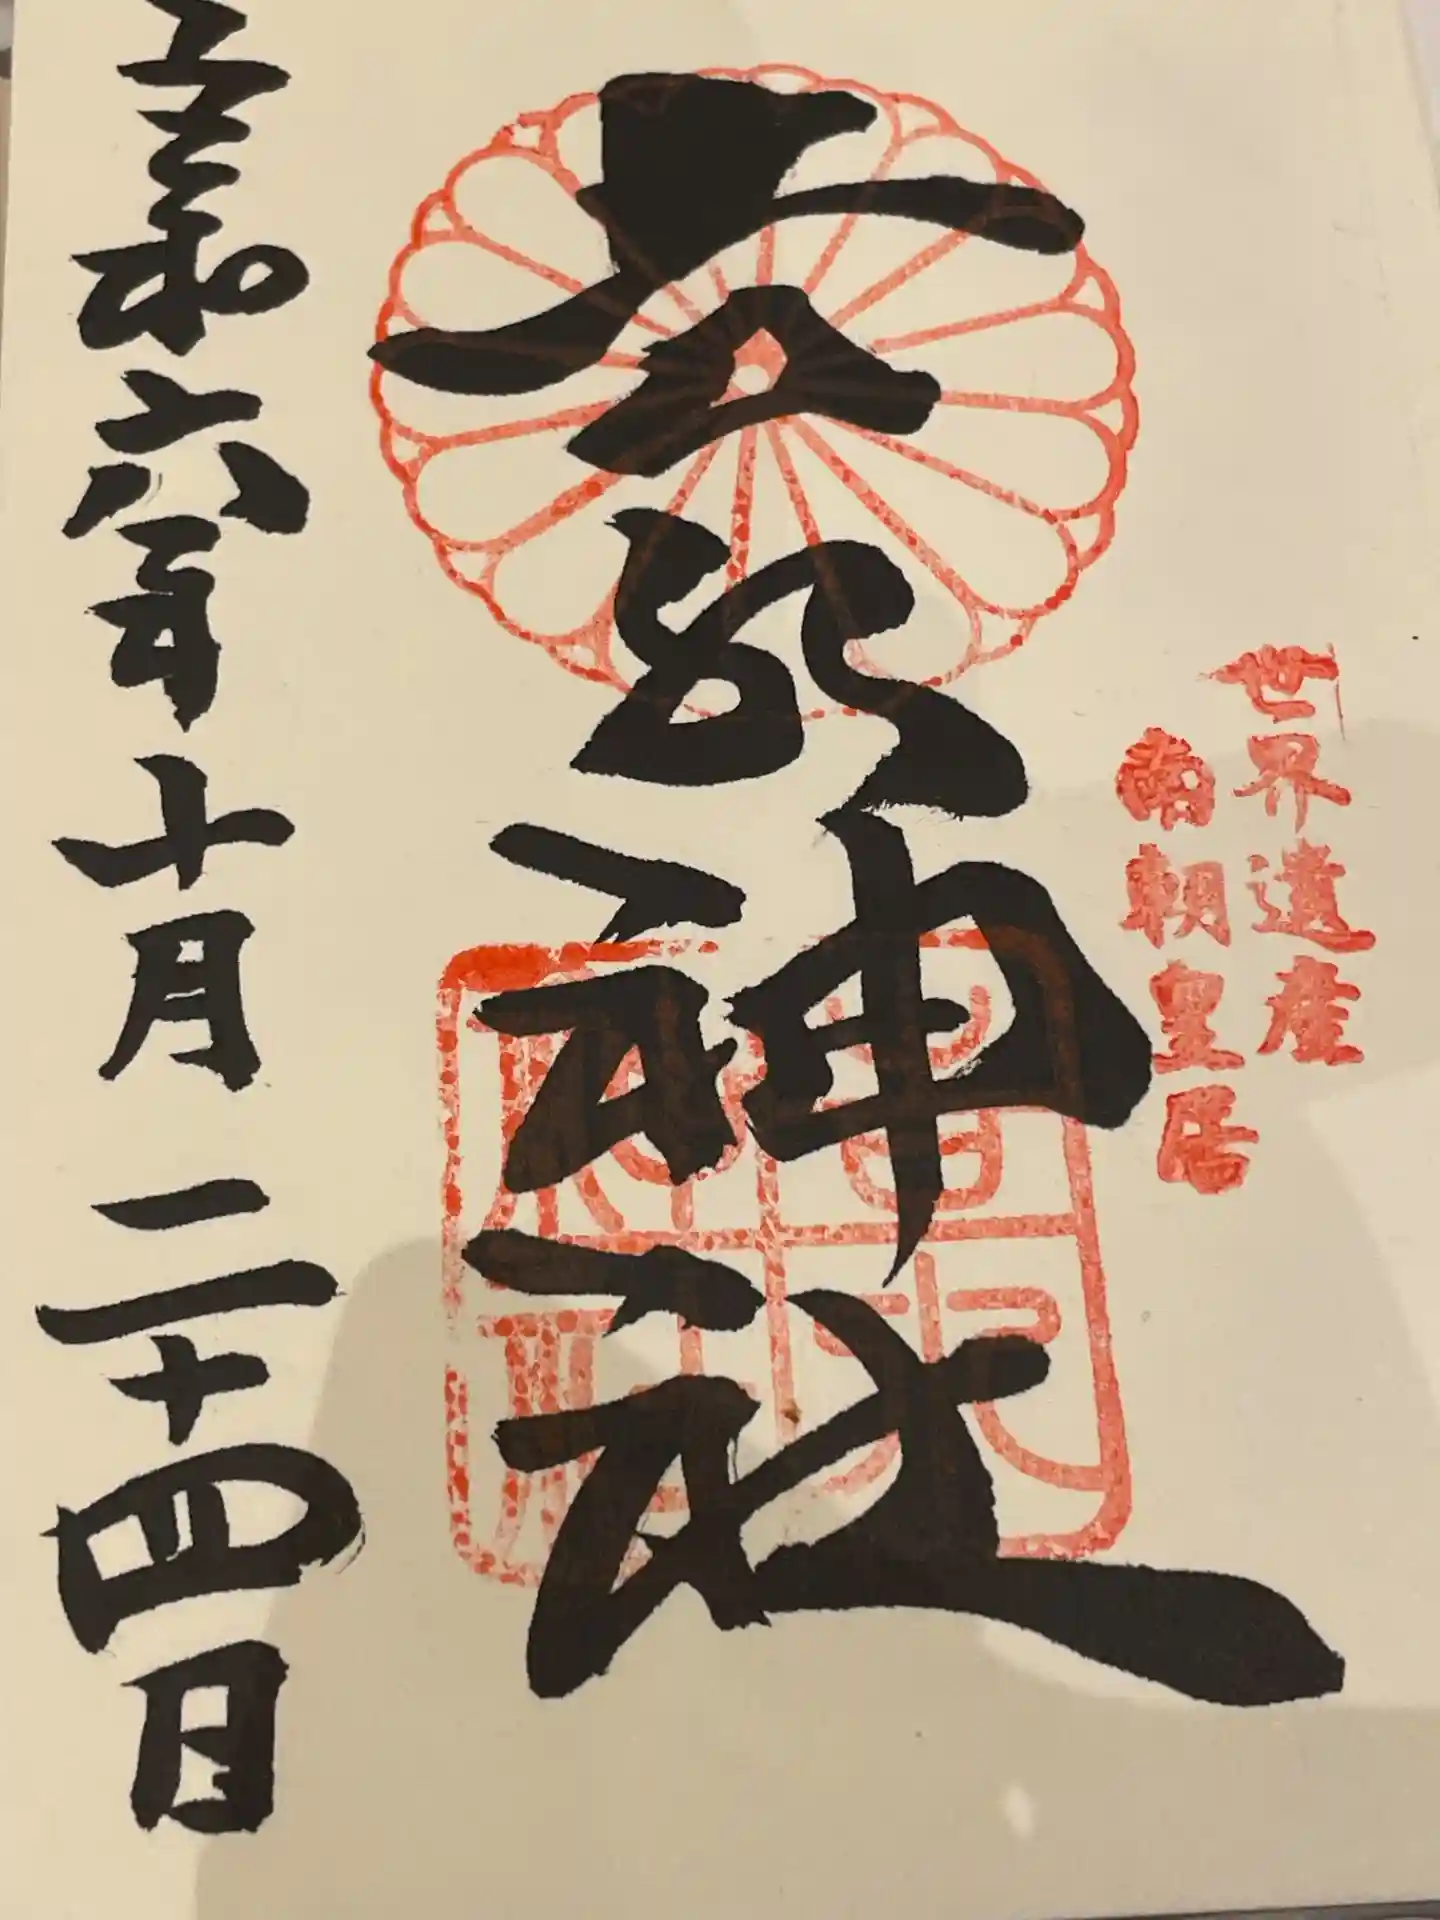 世界遺産
南朝皇居
吉水神社
吉水神社
令和六年十月二十四日